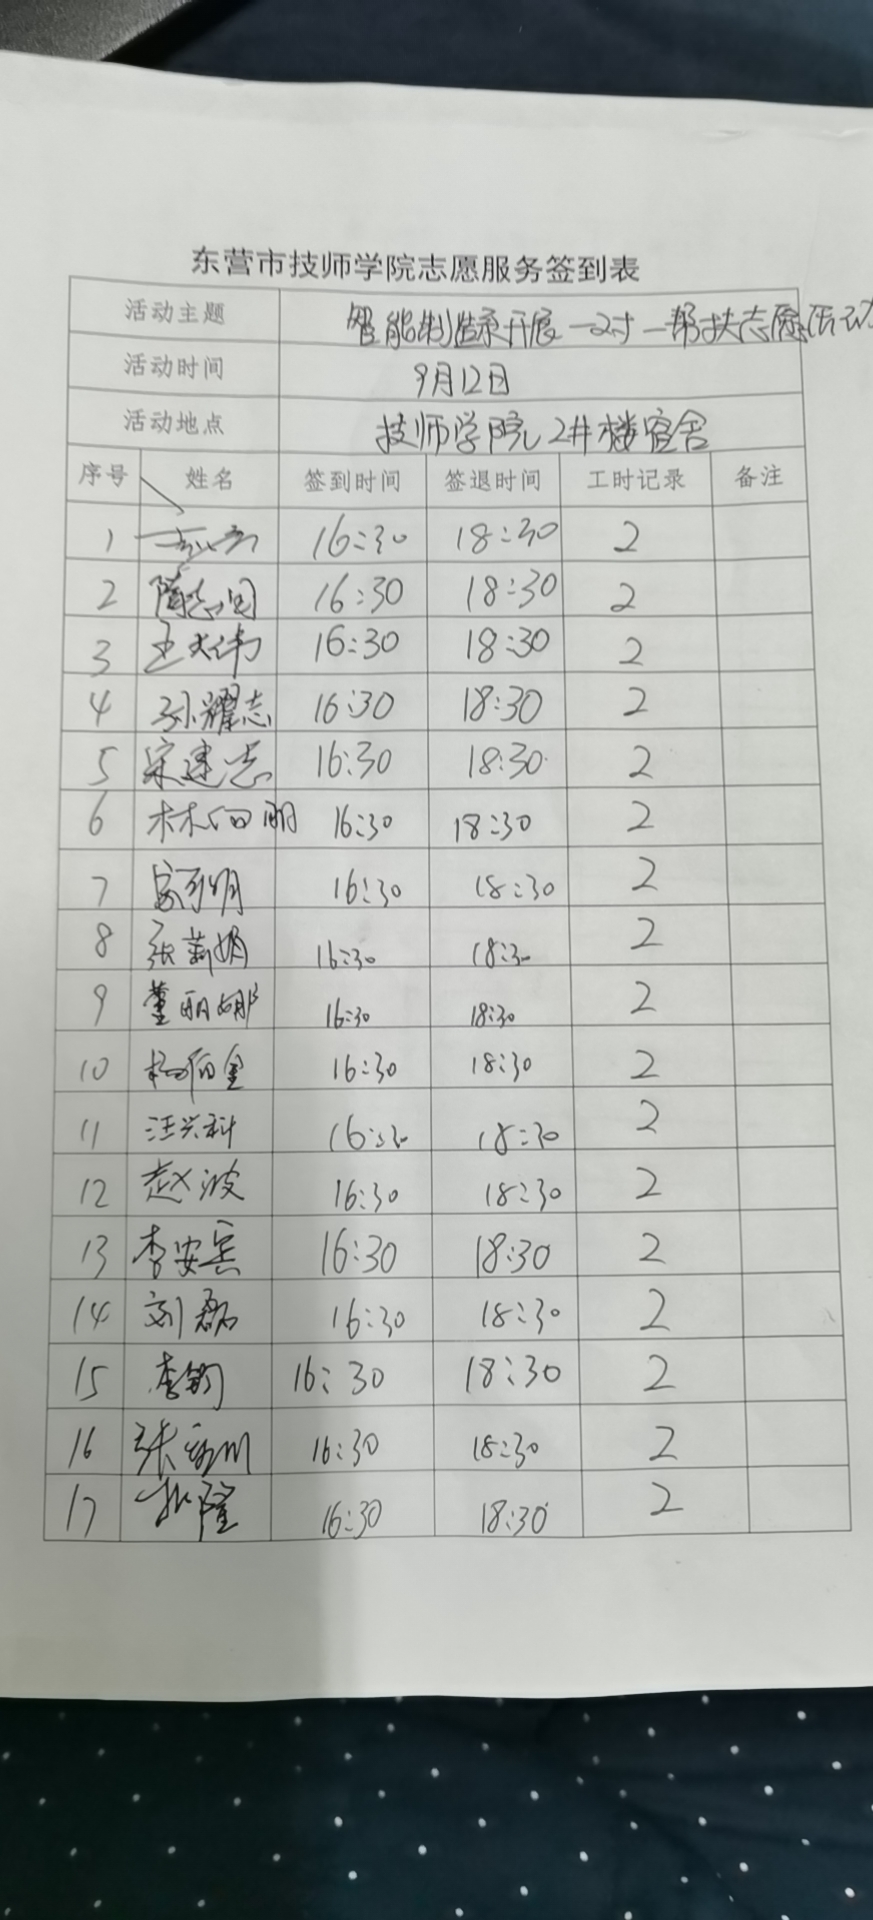 东营市技师学院志愿服务签到表
活动主题 智能制造系开展一对一帮扶志愿活动
活动时间 9月12日
活动地点 技师学院2#楼宿舍
序号 姓名 签到时间 签退时间 工时记录 备注
1 16:30 18:30 2
2 隋志国 16:30 18:30 2
3 王大伟 16:30 18:30 2
4 孙耀志 16:30 18:30 2
5 宋建志 16:30 18:30 2
6 16:30 18:30 2
7 16:30 18:30 2
8 张莉娟 16:30 18:30 2
9 董丽娜 16:30 18:30 2
10 16:30 18:30 2
11 汪兴科 16:30 18:30 2
12 赵波 16:30 18:30 2
13 李安宾 16:30 18:30 2
14 刘磊 16:30 18:30 2
15 16:30 18:30 2
16 16:30 18:30 2
17 16:30 18:30 2